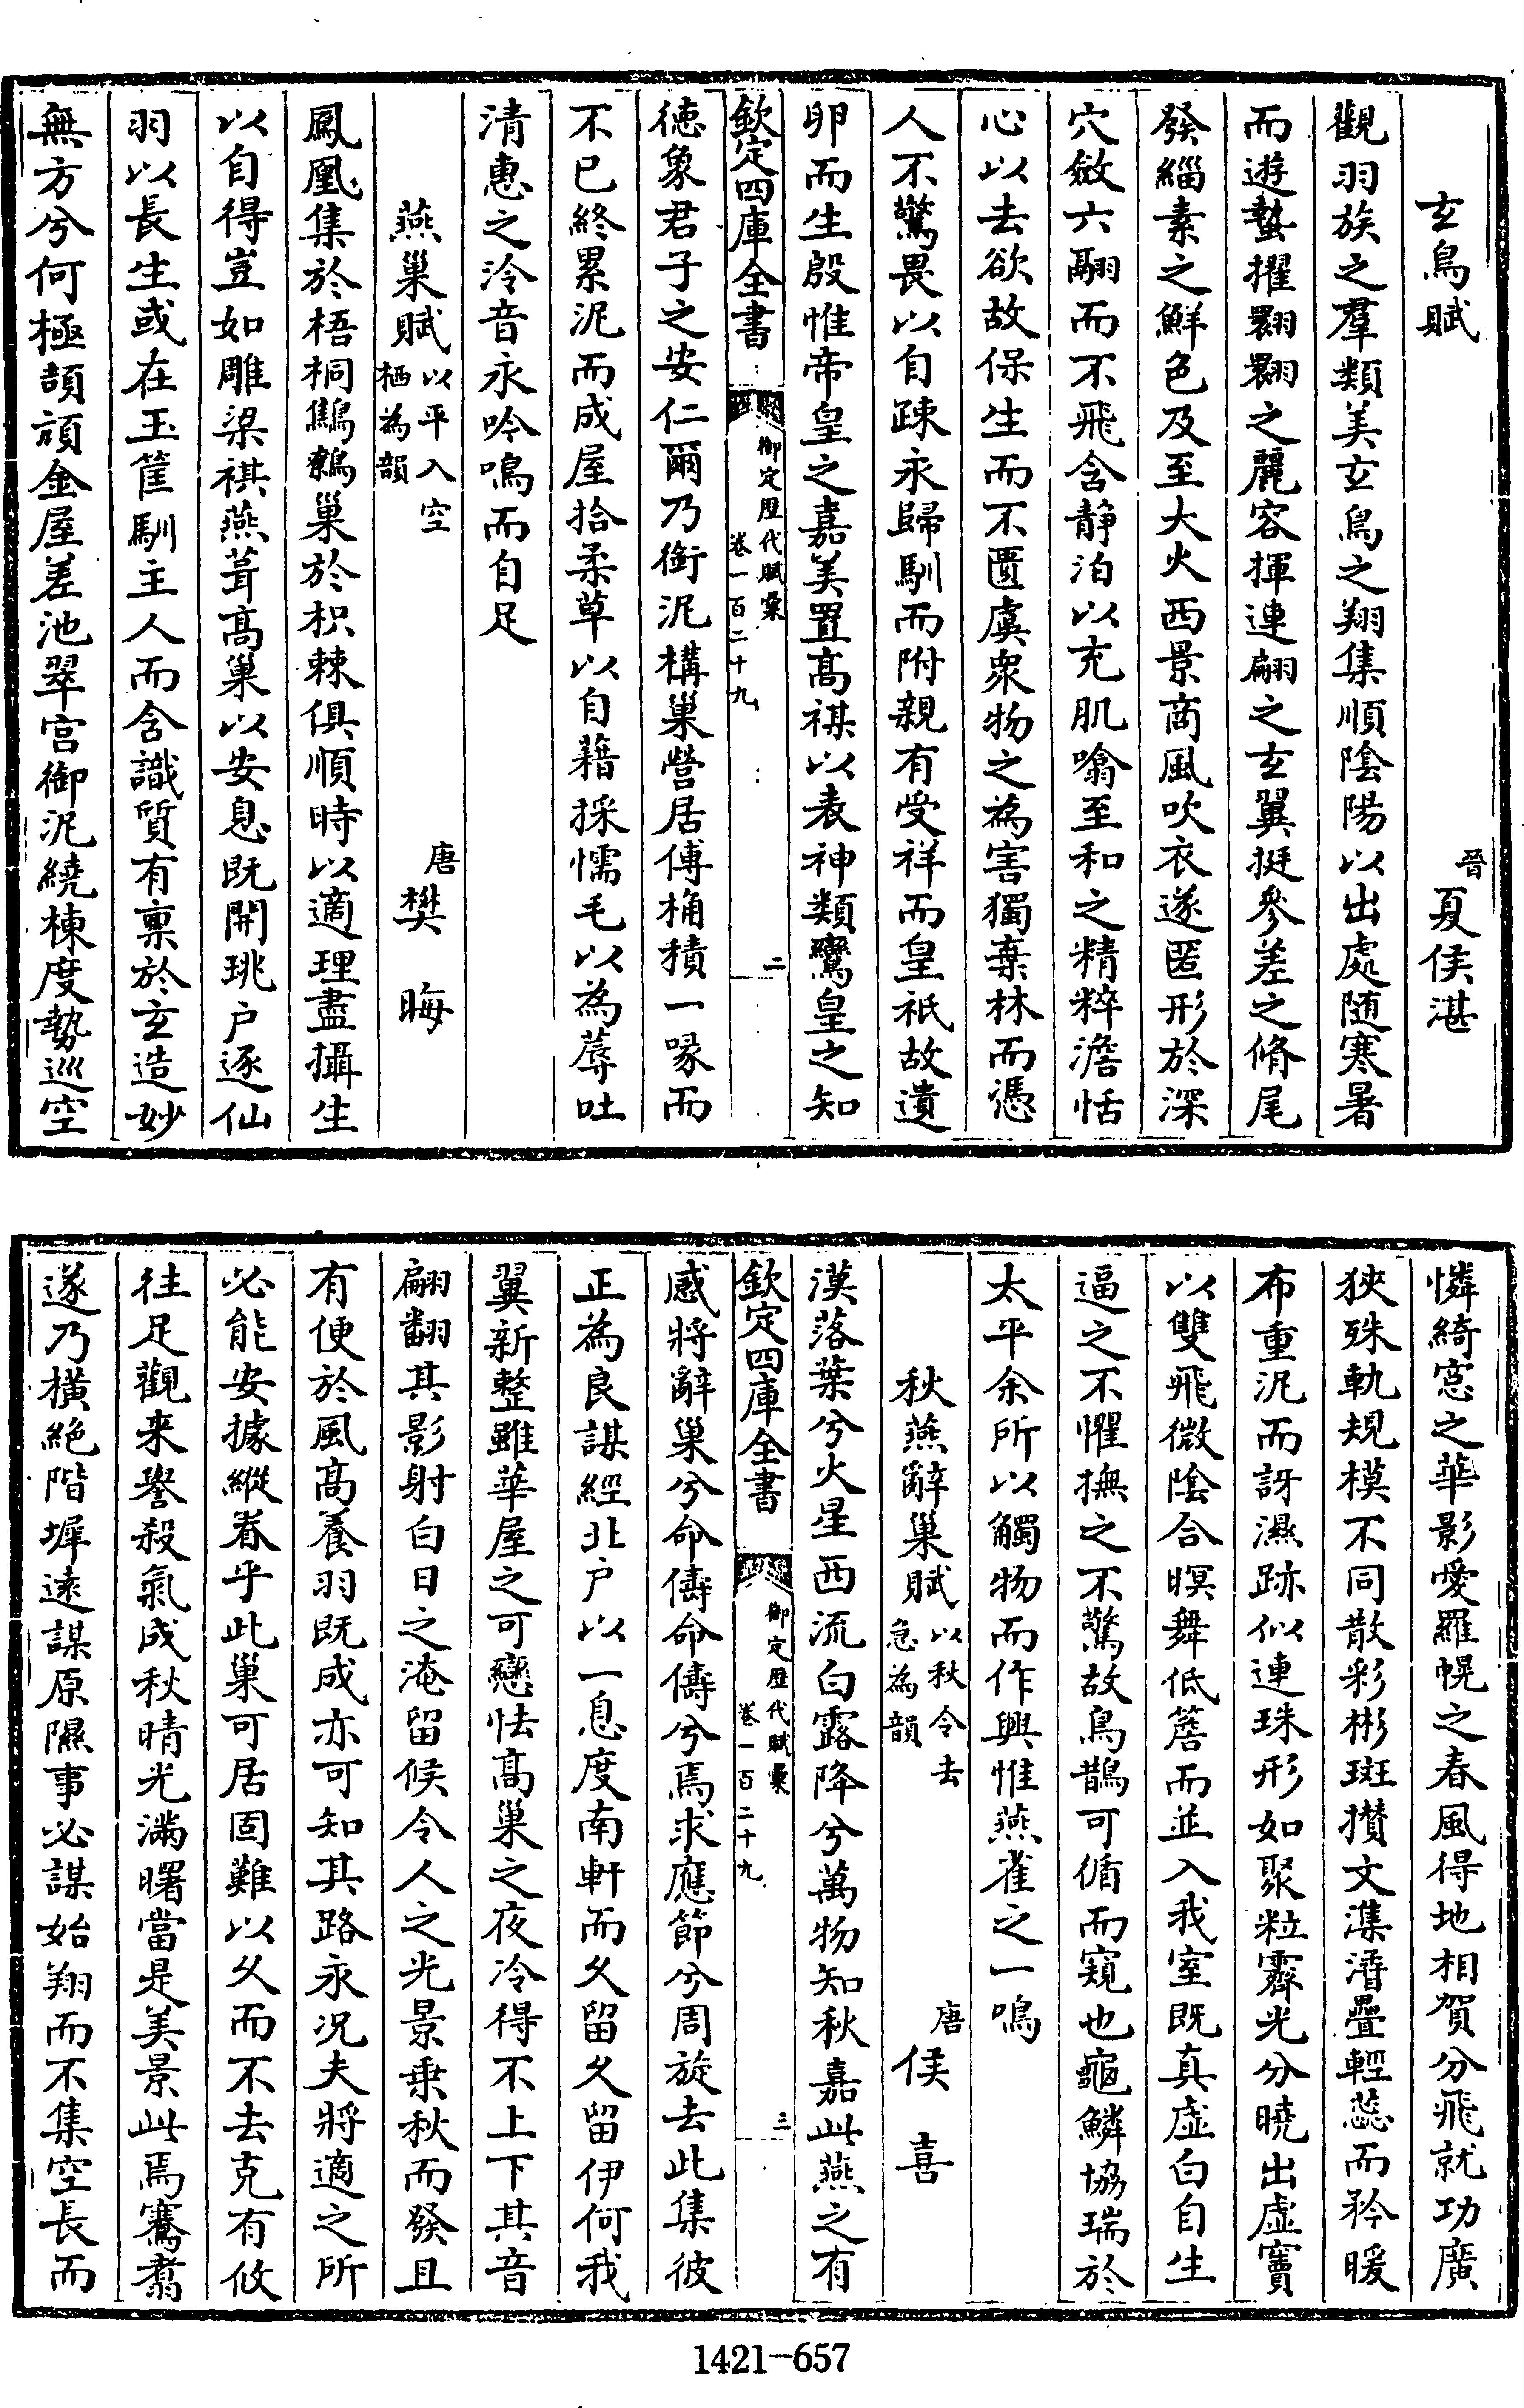 玄鳥賦 晉夏侯湛
觀羽族之羣類美玄鳥之翔集順陰陽以出處随寒暑
而遊蟄擢翾翾之麗容揮連翩之玄翼挺參差之脩尾
發緇素之鮮色及至大火西景商風吹衣遂匿形於深
穴斂六翮而不飛含静泊以充肌噏至和之精粹澹恬
心以去欲故保生而不匱虞衆物之為害獨棄林而憑
人不驚畏以自疎永歸馴而附親有受祥而皇祇故遺
卵而生殷惟帝皇之嘉美置髙禖以表神類鸞皇之知
欽定四庫全書 御定歴代賦彙 卷一百二十九 二
徳象君子之安仁爾乃銜泥構巢營居傅桷積一喙而
不已終累泥而成屋拾柔草以自藉採懦毛以為蓐吐
清惠之泠音永吟鳴而自足
燕巢賦 以平入空栖為韻 唐樊晦
鳳凰集於梧桐鷦鷯巢於枳棘俱順時以適理盡攝生
以自得豈如雕梁祺燕葺髙巢以安息既開珧户逐仙
羽以長生或在玉筐馴主人而含識質有禀於玄造妙
無方兮何極頡頏金屋差池翠宫御泥繞棟度勢巡空
憐綺窓之華影愛羅幌之春風得地相賀分飛就功廣
狹殊軌規模不同散彩彬斑攅文準潛疊輕蕊而矜暖
布重泥而訝濕跡似連珠形如聚粒霽光分曉出虚竇
以雙飛微陰合暝舞低簷而並入我室既真虚白自生
逼之不懼撫之不驚故鳥鵲可循而窺也龜鱗協瑞於
太平余所以觸物而作興惟燕雀之一鳴
秋燕辭巢賦 以秋令去急為韻 唐侯喜
漢落葉兮火星西流白露降兮萬物知秋嘉此燕之有
欽定四庫全書 御定歴代賦彙 卷一百二十九 三
感將辭巢兮命儔命儔兮焉求應節兮周旋去此集彼
正為良謀經北户以一息度南軒而乆留乆留伊何我
翼新整雖華屋之可戀怯髙巢之夜冷得不上下其音
翩翻其影射白日之淹留候令人之光景乗秋而發且
有便於風髙養羽既成亦可知其路永况夫將適之所
必能安據縱眷乎此巢可居固難以乆而不去克有攸
往足觀来譽殺氣成秋晴光滿曙當是美景此焉騫翥
遂乃横絶階墀遠謀原隰事必謀始翔而不集空長而
1421—657